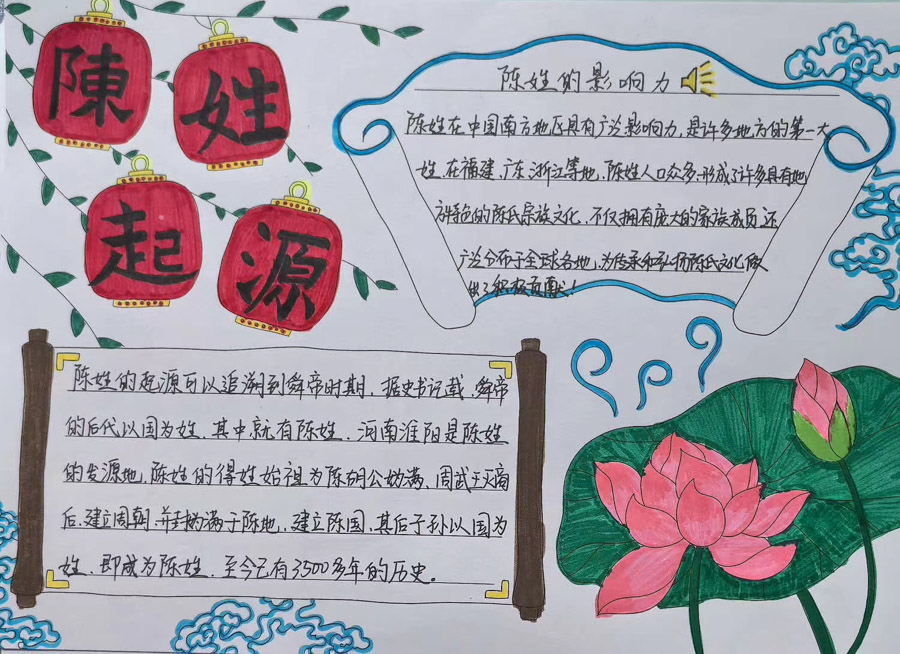 陳姓
起源
陈姓的影响力
陈姓在中国南方地区具有广泛影响力,是许多地方的第一大
姓.在福建、广东、浙江等地,陈姓人口众多,形成了许多具有地
方特色的陈氏宗族文化.不仅拥有庞大的家族成员,还
广泛分布于全球各地,为传承和弘扬陈氏文化做
出了积极贡献!
陈姓的起源可以追溯到舜帝时期,据史书记载,舜帝
的后代以国为姓.其中就有陈姓.河南淮阳是陈姓
的发源地,陈姓的得姓始祖为陈胡公妫满、周武王灭商
后,建立周朝,并封妫满于陈地,建立陈国,其后子孙以国为
姓.即成为陈姓.至今已有3500多年的历史。